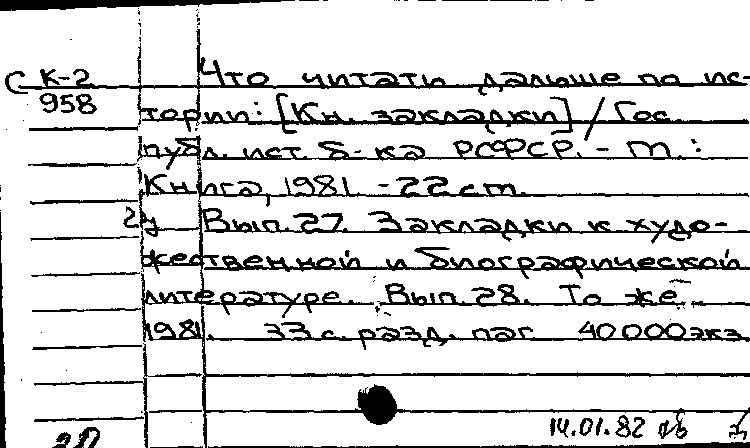 С К-2
958
Что читать дальше по ис-
тории: [Кн. закладки] / Гос.
публ. ист. б-ка РСФСР. - М.:
Книга, 1981. - 22 см.
2у Вып. 27. Закладки к худо-
жественной и биографической
литературе. Вып. 28. То же.
1981. 33 с. разд. паг. 40000экз.
14.01.82